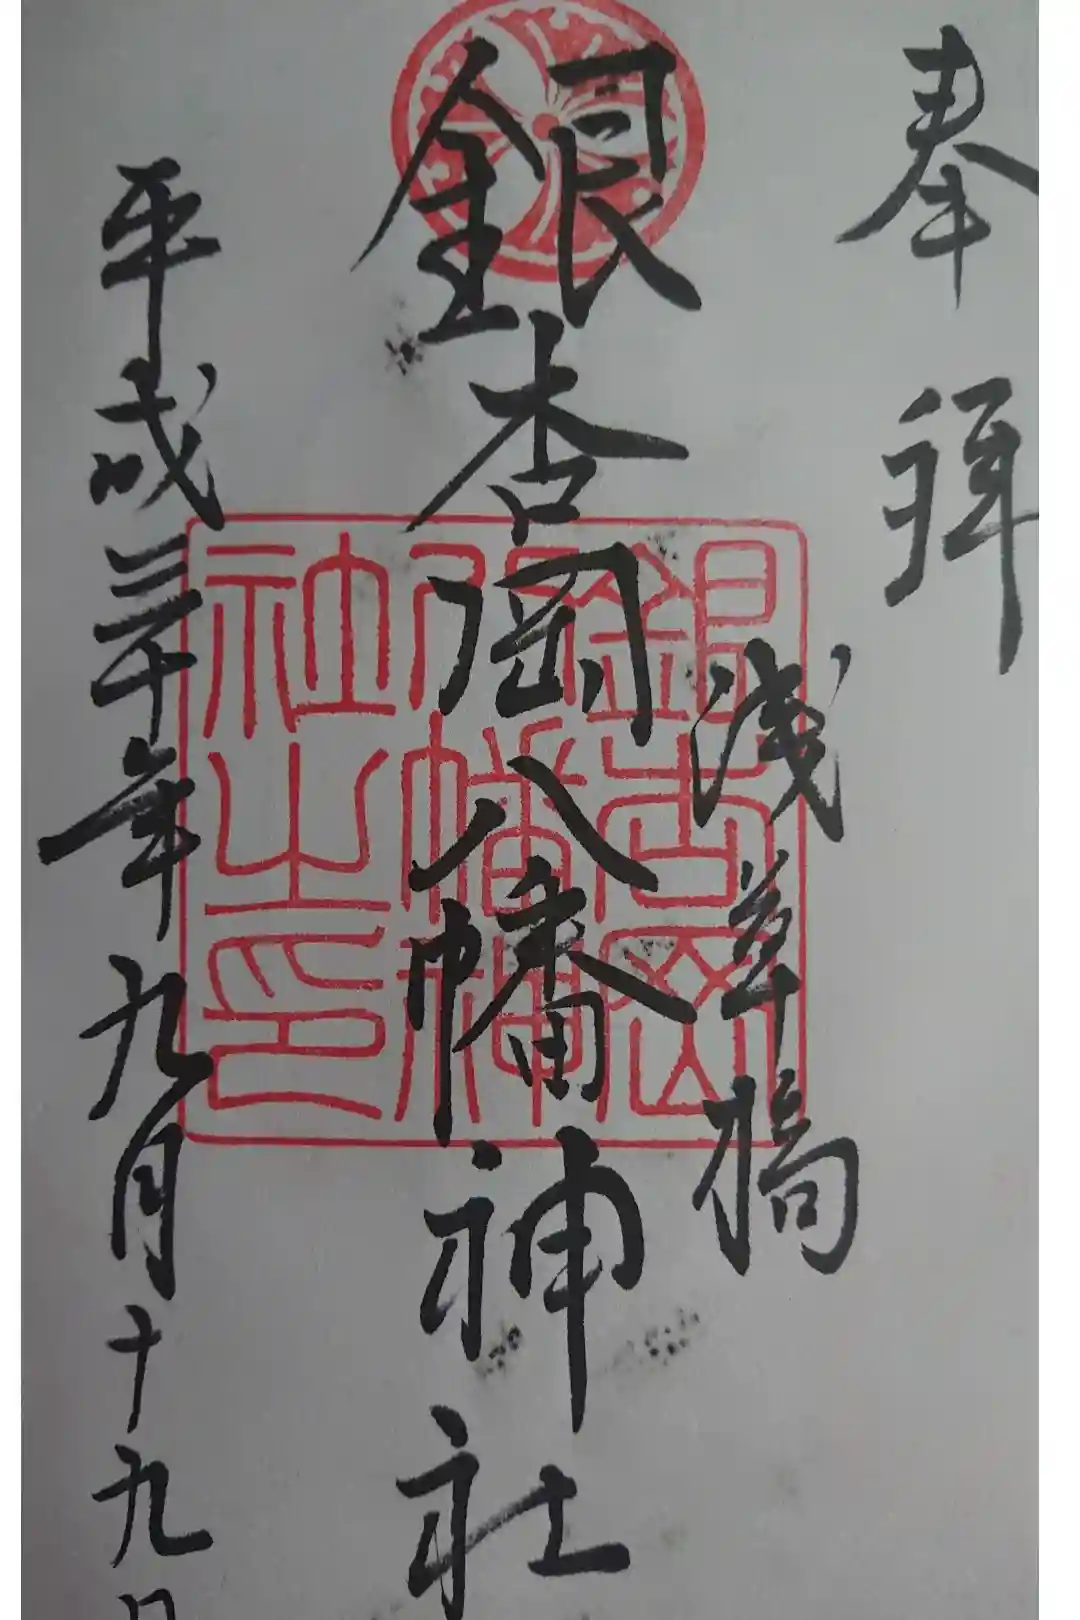 奉拝
浅草橋
銀杏岡八幡神社
銀杏岡
八幡神
社之印
平成三十年九月十九日